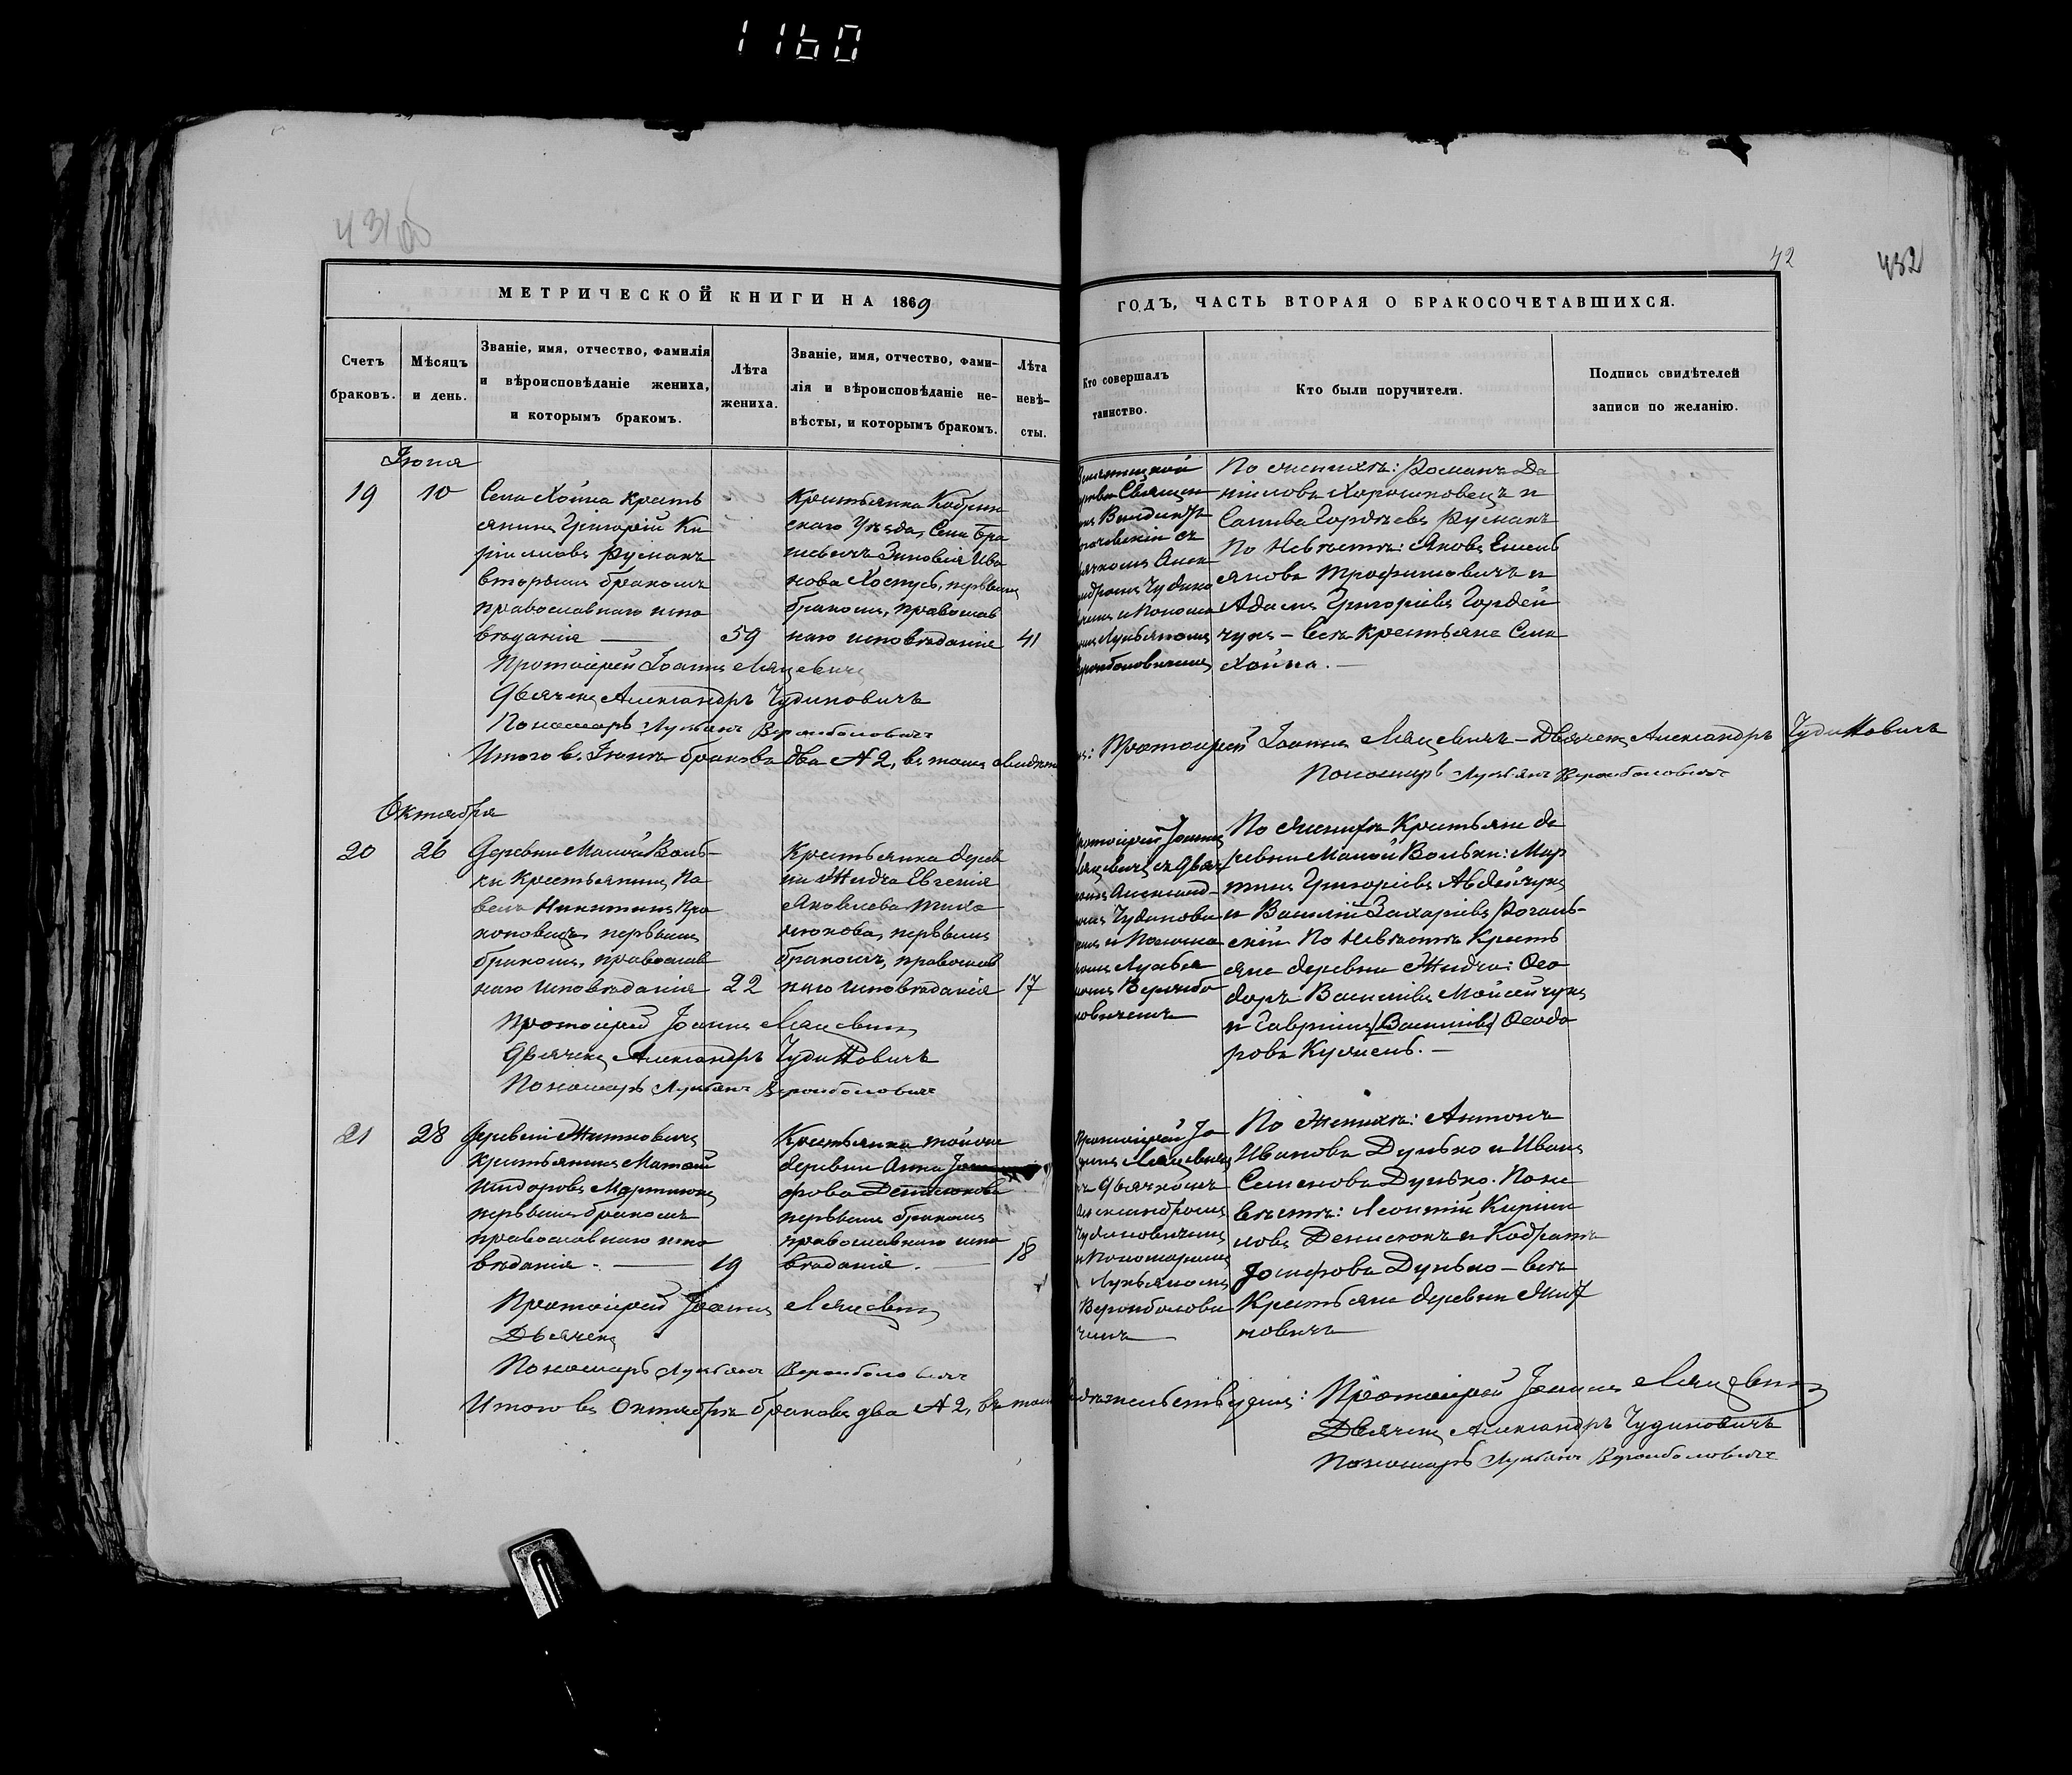 1160
431об
42
432
МЕТРИЧЕСКОЙ КНИГИ НА 1869
ГОДЪ, ЧАСТЬ ВТОРАЯ О БРАКОСОЧЕТАВШИХСЯ.
Счетъ
браковъ.
Мѣсяцъ
и день.
Званіе, имя, отчество, фамилія
и вѣроисповѣданіе жениха,
и которымъ бракомъ.
Лѣта
жениха.
Званіе, имя, отчество, фами-
лія и вѣроисповѣданіе не-
вѣсты, и которымъ бракомъ.
Лѣта
невѣ-
сты.
Кто совершалъ
таинство.
Кто были поручители.
Подпись свидѣтелей
записи по желанію.
Іюня
19
10
Села Хойна кресть
янинъ Григорій Ки
рилловъ Русмакъ
вторымъ бракомъ
православнаго испо
вѣданія —
59
Крестьянка Кобрин
скаго Уѣзда, Села
Зиновія Ива
нова первымъ
бракомъ, православ
наго исповѣданія
41
Священ
съ
Чудино
и Поном
По женихѣ: Романъ Да
ниловъ Хорошковецъ и
Савва Гордѣевъ Русмакъ
По Невѣстѣ: Яковъ Емель
яновъ Трофимовичъ и
Адамъ Григоріевъ Гордей
чукъ – всѣ крестьяне Села
Хойна. —
Протоіерей Іоаннъ Ляцевичъ
Дьячекъ Александръ Чудиновичъ
Пономарь Лукьянъ
Итого въ Іюнѣ браковъ два № 2, въ томъ
Протоіерей Іоаннъ Ляцевичъ – Дьячекъ Александръ Чудиновичъ
Пономарь Лукьянъ
Октября
20
26
Деревни Малой Воль-
ки Крестьянинъ Па
велъ Никитинъ Про
коповичъ, первымъ
бракомъ, православ
наго исповѣданія
22
Крестьянка дерев
ни Жидча Евгенія
Яковлева Миха
люкова, первымъ
бракомъ, православ
наго исповѣданія
17
Протоіерей Іоаннъ
Ляцевичъ съ Дьяч
комъ Александ-
ромъ Чудинови
чемъ и Понома
ремъ Лукья
номъ
По женихѣ Крестьяне де
ревни Малой Вольки: Мар
тинъ Григоріевъ Авдейчукъ
и Василій Захаріевъ Рогаль-
скій По Невѣстѣ Кресть
яне деревни Жидча: Ѳео
доръ Васильевъ Мойсейчукъ
и Гавріилъ (Васильевъ) Ѳеодо
ровъ —
Протоіерей Іоаннъ Ляцевичъ
Дьячекъ Александръ Чудиновичъ
Пономарь Лукьянъ
21
28
Деревни Житновичъ
Крестьянинъ Матвей
Исидоровъ Мартинюкъ
первымъ бракомъ
православнаго испо
вѣданія. —
19
Крестьянка той же
деревни Анна
Денисюкова
первымъ бракомъ
православнаго испо
вѣданія. —
18
Протоіерей Іо
аннъ Ляцевичъ
съ Дьячкомъ
Александромъ
Чудиновичемъ
и Пономаремъ
Лукьяномъ
По Женихѣ: Антонъ
Ивановъ Дунько и Иванъ
Семеновъ Дунько. По не
вѣстѣ: Леонтій Кирил
ловъ Денисюкъ и Кодратъ
Іосифовъ Дунько – всѣ
Крестьяне деревни Жит
новичъ
Протоіерей Іоаннъ Ляцевичъ
Дьячекъ
Пономарь Лукьянъ
Итого въ Октябрѣ браковъ два № 2, въ томъ свидѣтельствуемъ: Протоіерей Іоаннъ Ляцевичъ
Дьячекъ Александръ Чудиновичъ
Пономарь Лукьянъ